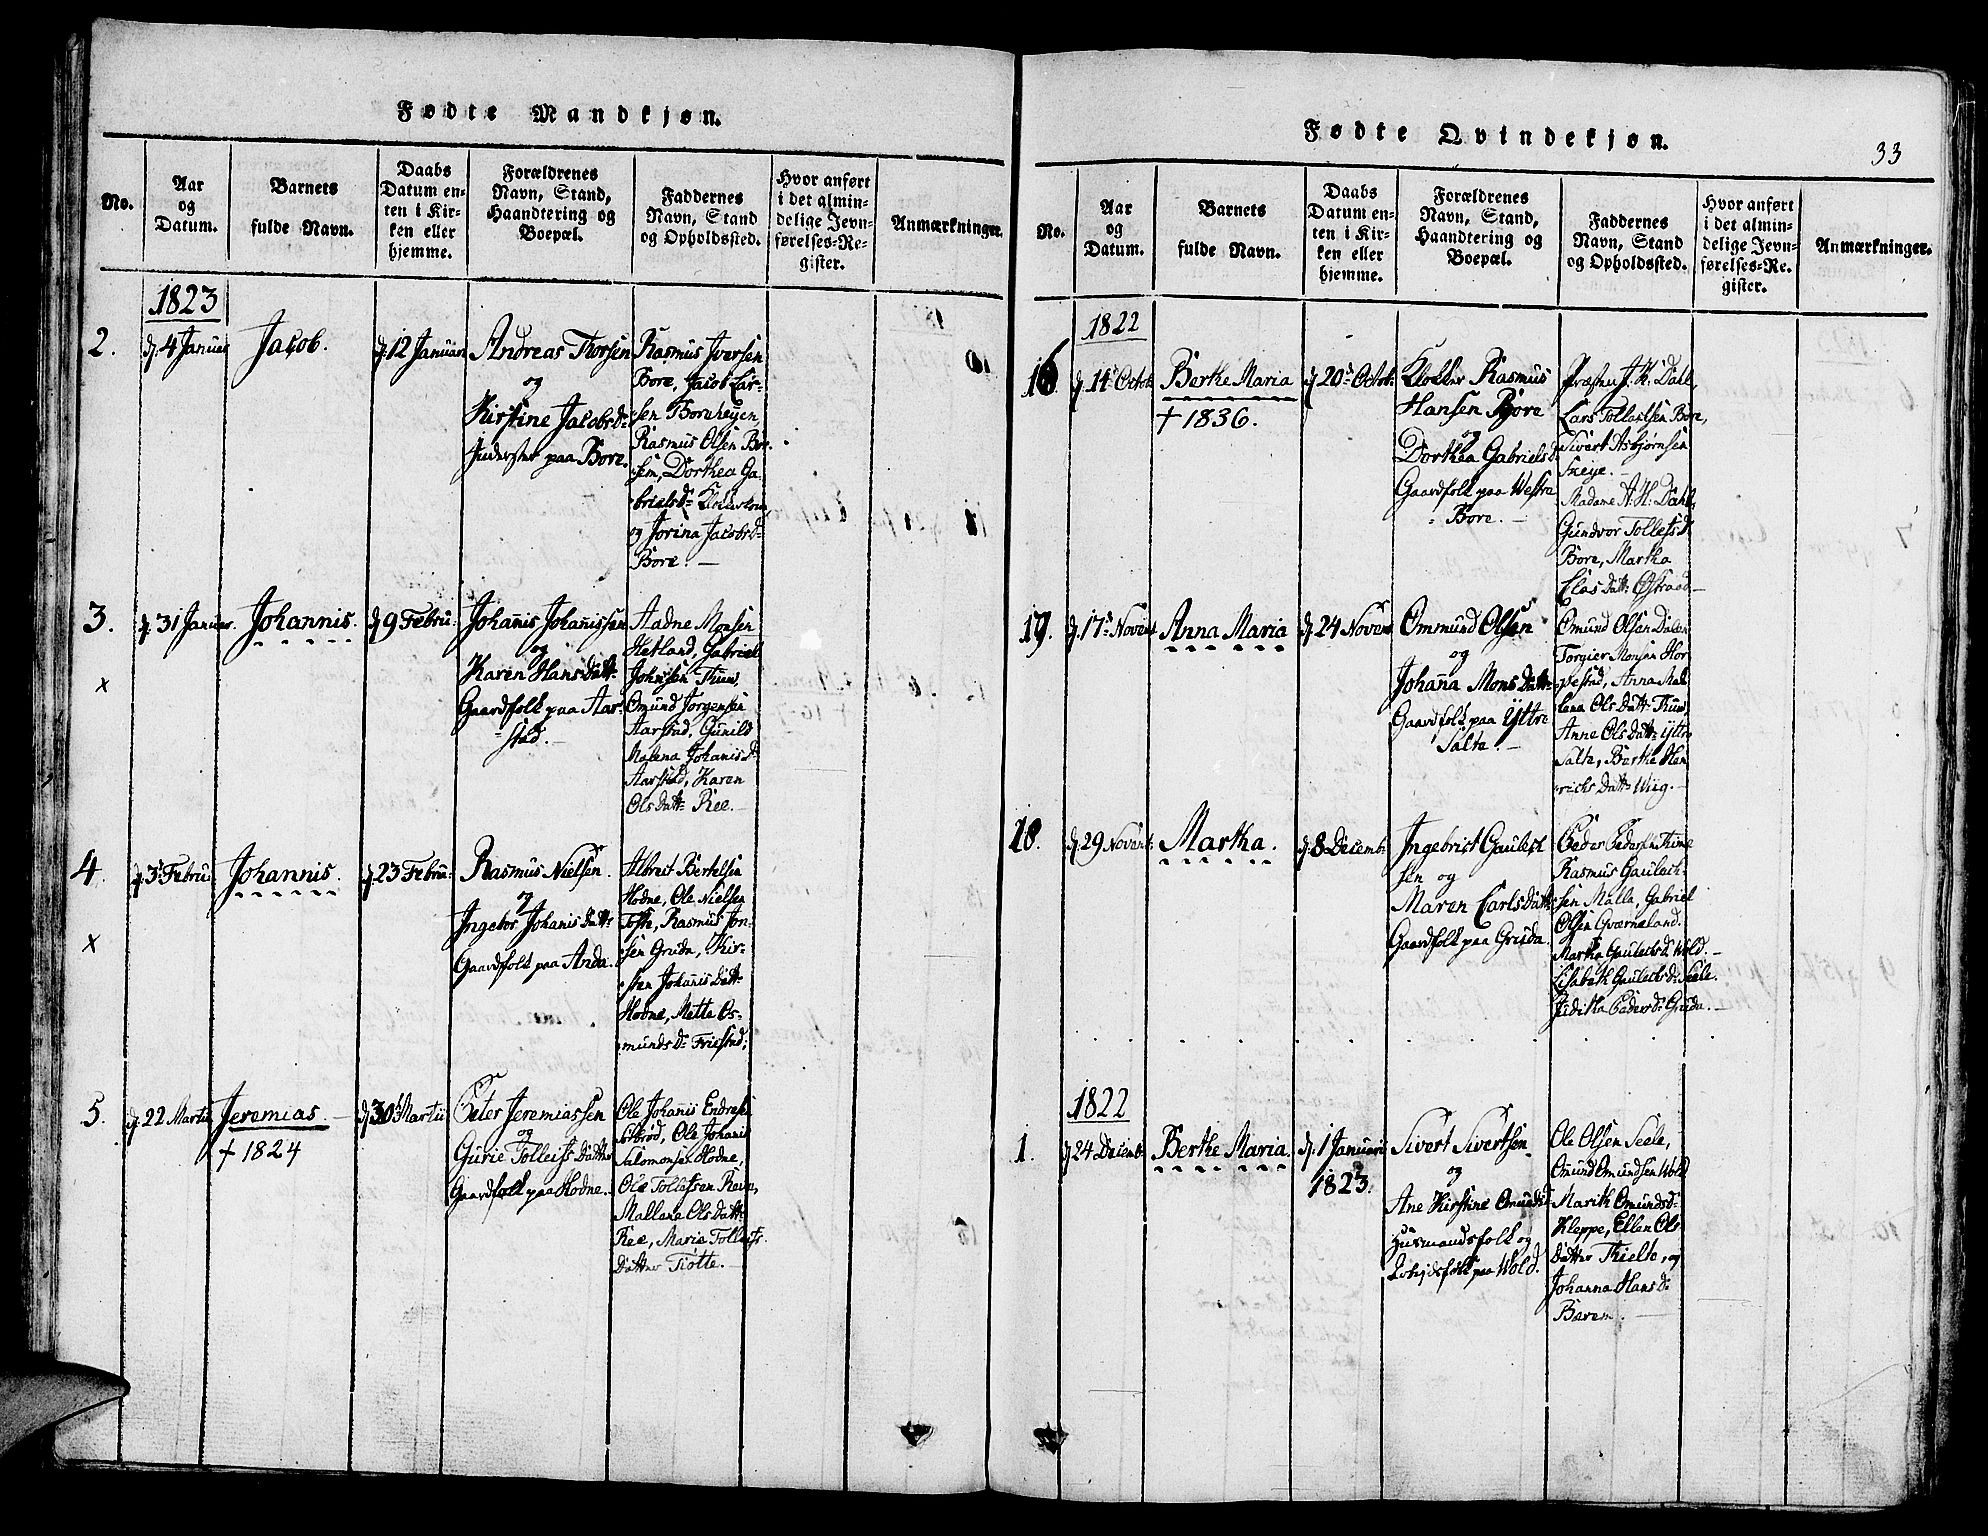 Fødte Mandkjøn.
No.
Aar
og
Datum.
Barnets
fulde Navn.
Daabs
Datum en-
ten i Kir-
ken eller
hjemme.
Forældrenes
Navn, Stand,
Haandtering og
Boepæl.
Faddernes
Navn, Stand
og Opholdssted.
Hvor anført
i det almin-
delige Jevn-
førelses-Re-
gister.
Anmærkninger.
1823
2.
d. 4 Januar
Jacob.
d. 12 Januari
Andreas Thorsen
og
Kirstine Jacobsd
Inderster paa Bore.
Rasmus Iversen
Bore, Jacob Lar-
sen Boreheyen
Rasmus Olsen Bo-
Dorthea Ga-
brielsd
og Jorina Jacobsd
Bore.
3.
d. 31 Januar.
Johannis.
d. 9 Febru:
Johanis Johanissen
og
Karen Hansdatt:
Gaardfolk paa Aar-
stad.
Aadne Monsen
Hetland, Gabriel
Johnsen Thuu
Omund Jørgensen
Aarstad, Gunild
Malena Johanisd
Aarstad, Karen
Olsdatt: Ree.
x
4.
d. 3 Febru:
Johannis.
d. 23 Febru:
Rasmus Nielsen.
og
Ingebor Johanisdatt:
Gaardfolk paa Anda.
Albreit Bertelsen
Hodne, Ole Nielsen
Rasmus Jon-
sen Gruda, Kir-
sten Johanis Datt
Hodne, Mette Os-
munds D: Friestad;
x
5.
d. 22 Martii
Jeremias.
† 1824
d. 30 Martii
Peter Jeremiassen
og
Gurie Tolleifs Datter
Gaardfolk paa Hodne.
Ole Johanis Endresen
Ole Johanis
Salomonsen Hodne,
Ole Tollefsen
Mallene Olsdatt:
Ree, Marie Tolleifs
Datter Tiøtte.
Fødte Qvindekjøn.
33
No.
Aar
og
Datum.
Barnets
fulde Navn.
Daabs
Datum en-
ten i Kir-
ken eller
hjemme.
Forældrenes
Navn, Stand,
Haandtering og
Boepæl.
Faddernes
Navn, Stand
og Opholdssted.
Hvor anført
i det almin-
delige Jevn-
førelses-Re-
gister.
Anmærkninger.
1822
16
d. 14 Octob:
Berthe Maria
† 1836.
d. 20 Octob:
Klokker Rasmus
Hansen Bore
og
Dorthea Gabrielsd
Gaardfolk paa Westre
Bore.
Præsten J. K. Dahl,
Lars Tollefsen Bore,
Sivert Asbjørnsen
Madame A. H. Dahl
Gundvor Tollefsd
Bore, Martha
Clas Datt: Østraad
17.
d. 17 Novemb
Anna Maria
d. 24 Novem
Ommund Olsen
og
Johanna Mons Datt:
Gaardfolk paa Yttre
Salte.
Omund Olsen
Torgier Monsen Hor-
pestad, Anna Mal-
lena Olsdatt: Thuu
Anne Olsdatt: Yttre
Salte, Berthe Hen-
richs Datt: Wiig.
18.
d. 29 Novemb:
Martha.
d. 8 Decemb:
Ingebrict Gaulect
sen og
Maren Carls Datt:
Gaardfolk paa Gruda.
Peder Pedersen Thime
Rasmus Gaulech-
sen Malle, Gabriel
Olsen Qværneland.
Martha Gaulechsd Wold.
Elisabeth Gaulechsd: Seele.
Juditha Pedersd: Gruda.
1822
1.
d. 24 Decemb:
Berthe Maria.
d. 1 Januari
1823.
Sivert Sivertsen
og
Ane Kirstine Omundsd
Husmandsfolk og
Arbejdsfolk paa Wold.
Ole Olsen Seele,
Omund Omundsen Wold
Marith Omundsd:
Kleppe, Ellen Ols
Datter Thielte, og
Johanna Hans d: